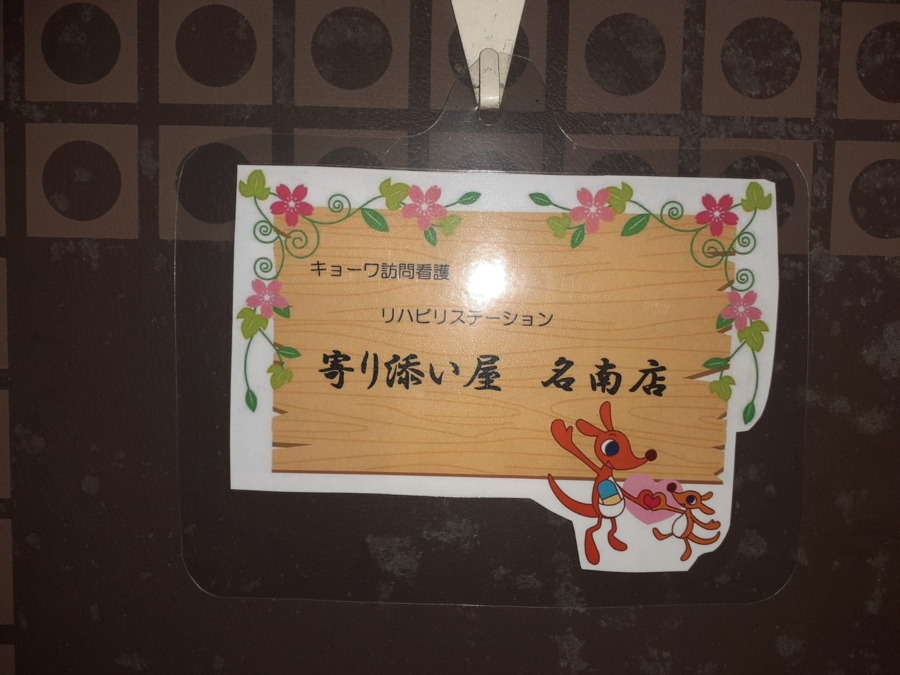 キョーワ訪問看護
リハビリステーション
寄り添い屋 名南店